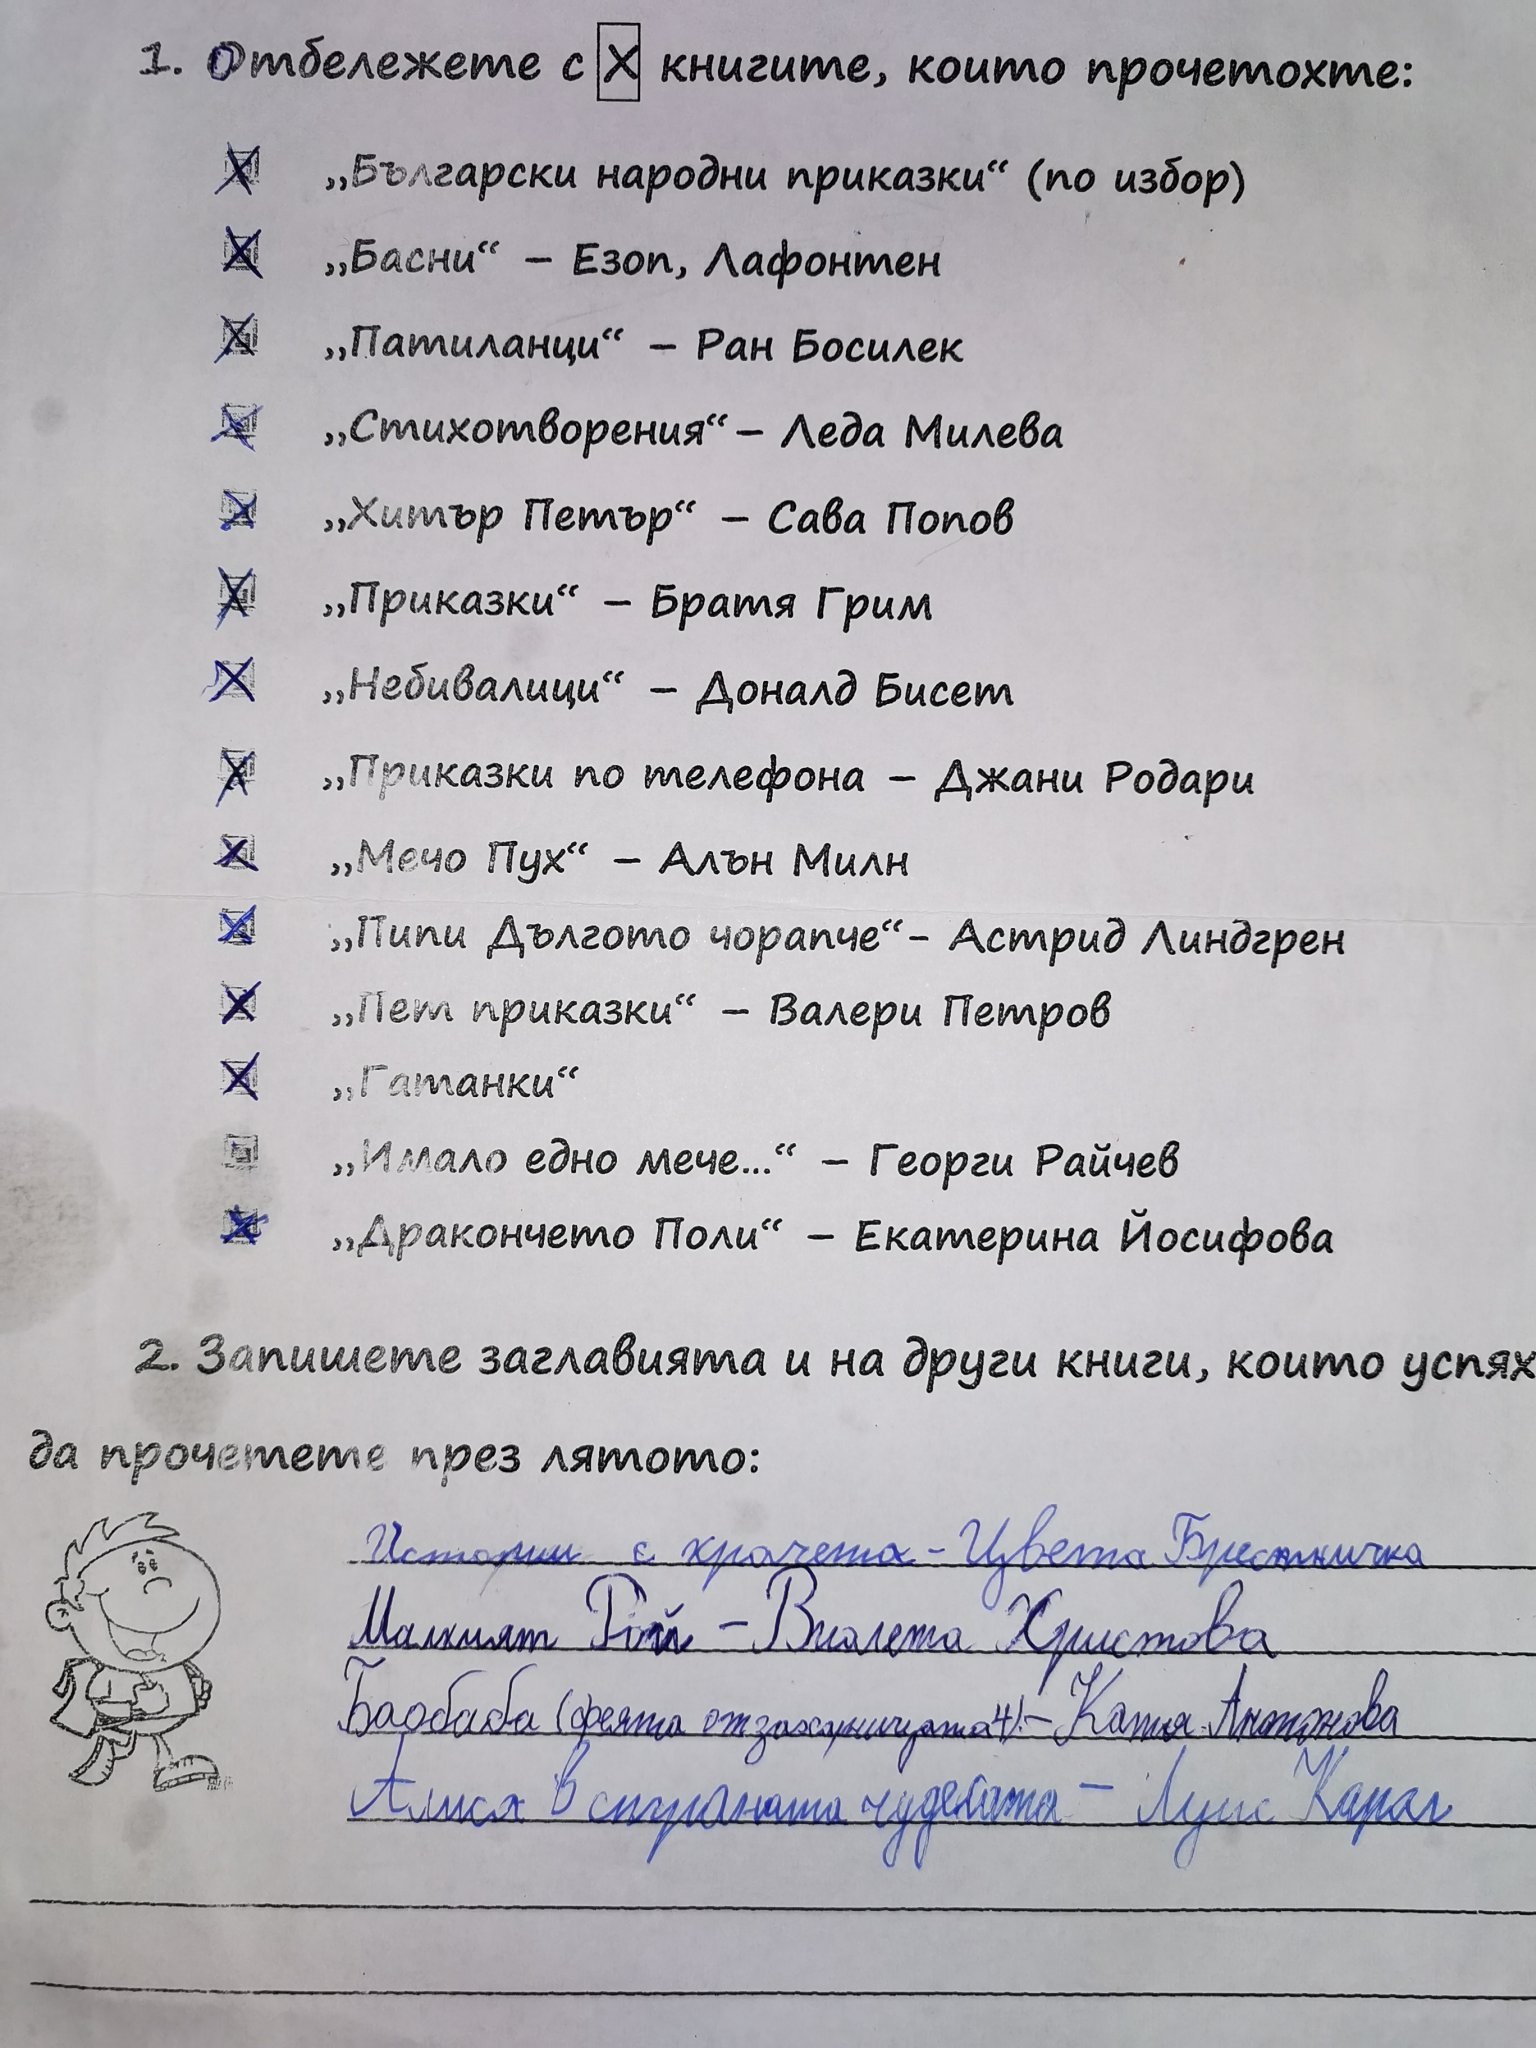 1. Отбележете с X книгите, които прочетохте:
„Български народни приказки“ (по избор)
„Басни“ – Езоп, Лафонтен
„Патиланци“ – Ран Босилек
„Стихотворения“ – Леда Милева
„Хитър Петър“ – Сава Попов
„Приказки“ – Братя Грим
„Небивалици“ – Доналд Бисет
„Приказки по телефона – Джани Родари
„Мечо Пух“ – Алън Милн
„Пипи Дългото чорапче“ – Астрид Линдгрен
„Пет приказки“ – Валери Петров
„Гатанки“
„Имало едно мече...“ – Георги Райчев
„Дракончето Поли“ – Екатерина Йосифова
2. Запишете заглавията и на други книги, които успях
да прочетете през лятото:
Истории с крачета – Цвета Брестничка
Малкият Рой – Виолета Христова
Баобаба (феята от захарницата 4) – Катя Антонова
Алиса в страната чудесата – Луис Карол